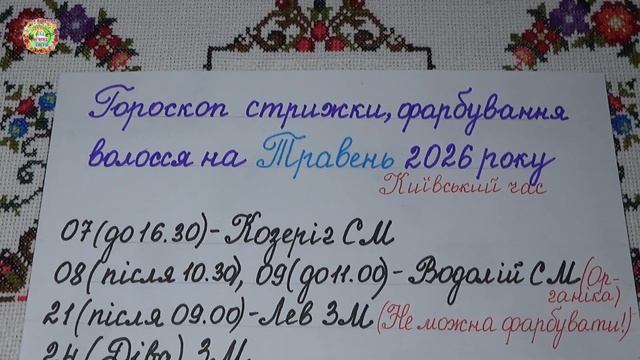 Гороскоп стрижки, фарбування
волосся на Травень 2026 року
Київський час
07 (до 16.30) - Козеріг СМ
08 (після 10.30), 09 (до 11.00) - Водолій СМ (Ор-
ганіка)
21 (після 09.00) - Лев ЗМ (Не можна фарбувати!)
24 (Діва) ЗМ